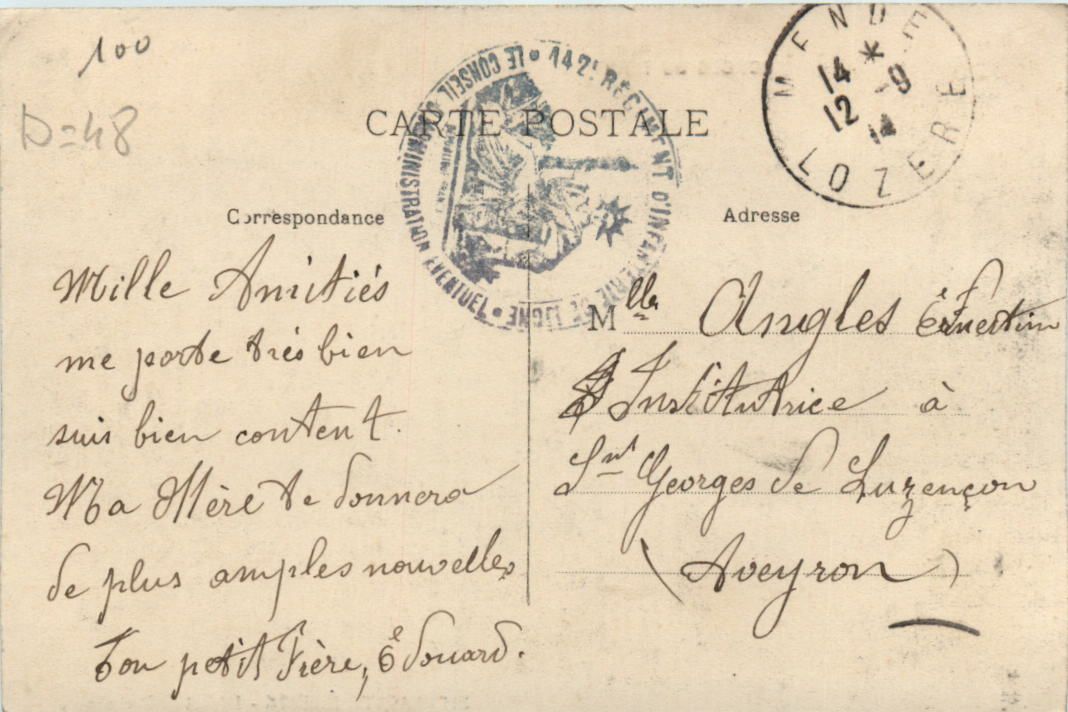 100
D=48
CARTE POSTALE
142E REGIMENT D'INFANTERIE DE LIGNE
LE CONSEIL D'ADMINISTRATION EVENTUEL
MENDE
14 * 9
12 14
LOZERE
Correspondance
Mille Amitiés
me porte très bien
suis bien content.
Ma Mère te donnera
de plus amples nouvelles
Ton petit Frère, Edouard.
Adresse
Mlle Angles Ernestin
Institutrice à
Snt Georges de Luzençon
(Aveyron)